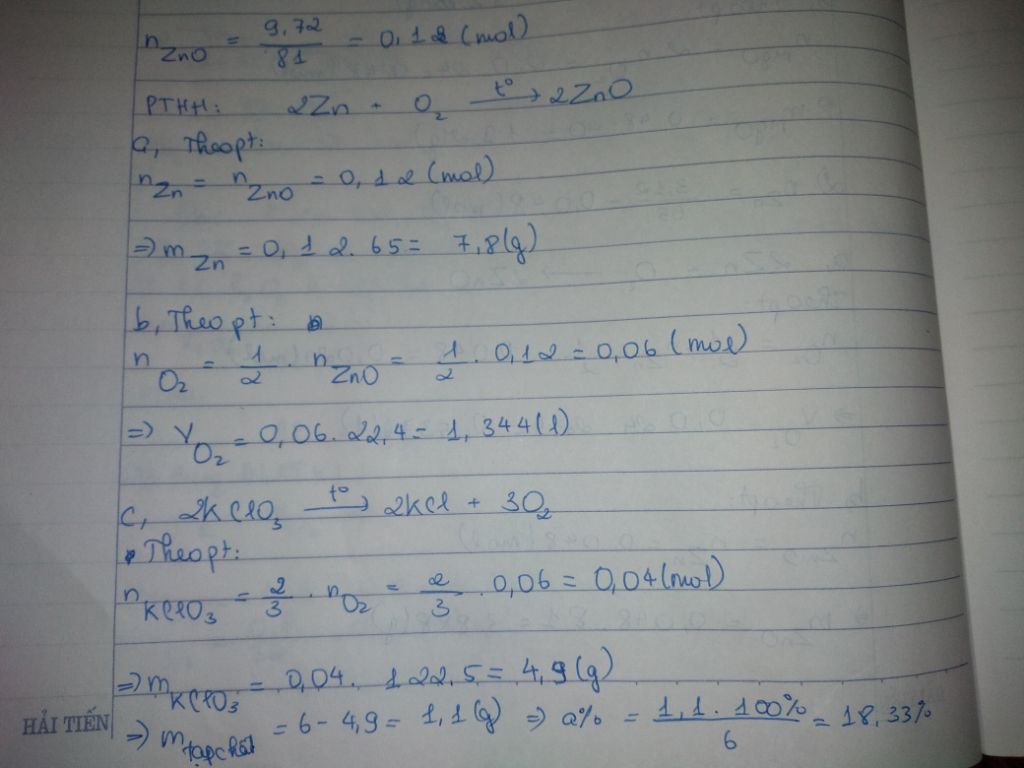 n ZnO = 9,72/81 = 0,12 (mol)
PTHH: 2Zn + O2 t°→ 2ZnO
a, Theo pt:
n Zn = n ZnO = 0,12 (mol)
=> m Zn = 0,12.65 = 7,8(g)
b, Theo pt:
n O2 = 1/2 . n ZnO = 1/2 . 0,12 = 0,06 (mol)
=> V O2 = 0,06.22,4 = 1,344(l)
c, 2KClO3 t°→ 2KCl + 3O2
Theo pt:
n KClO3 = 2/3 . n O2 = 2/3 . 0,06 = 0,04(mol)
=> m KClO3 = 0,04. 122,5 = 4,9(g)
=> m tạp chất = 6 - 4,9 = 1,1(g) => a% = 1,1.100%/6 = 18,33%
HẢI TIẾN